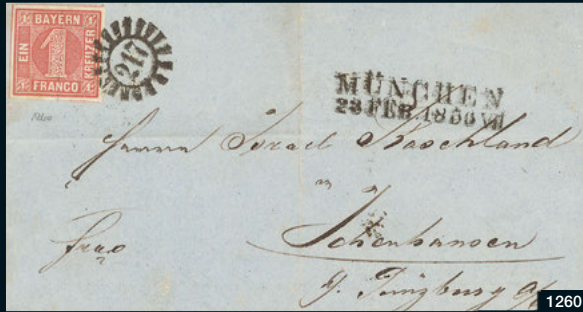 BAYERN
EIN
1
KREUZER
FRANCO
217
MÜNCHEN
28 FEB. 1860 VII
Herrn Israel
in
Ichenhausen
frco
1260